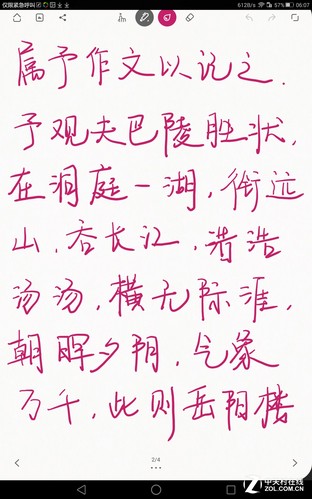 仅限紧急呼叫
612B/s 57% 06:07
属予作文以记之.
予观夫巴陵胜状,
在洞庭一湖,衔远
山,吞长江,浩浩
汤汤,横无际涯,
朝晖夕阴,气象
万千,此则岳阳楼
2/4
中关村在线
ZOL.COM.CN